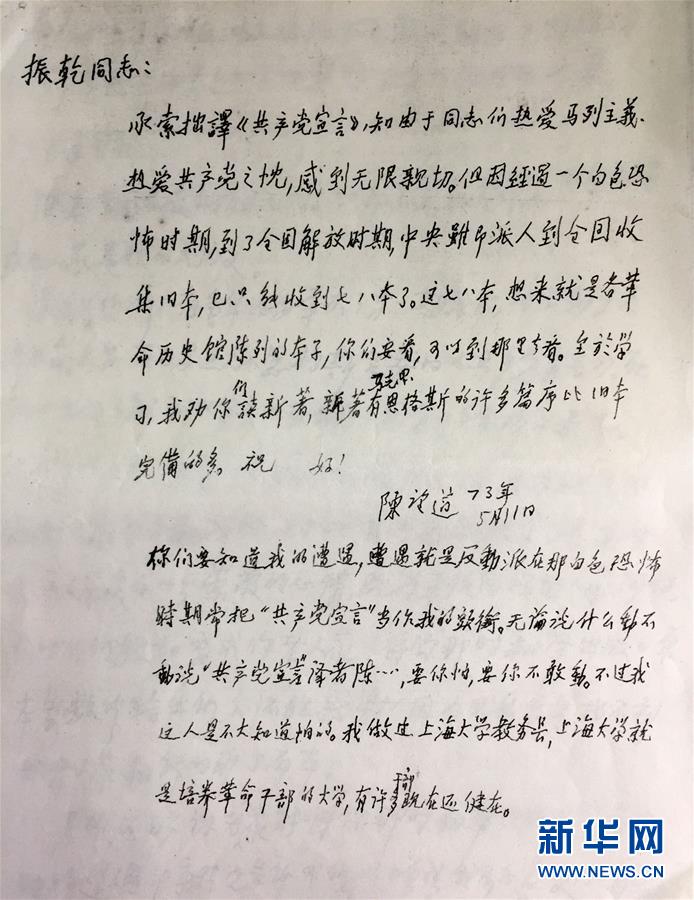 振乾同志：
承索拙譯《共产党宣言》，知由于同志们热爱马列主义、
热爱共产党之忱，感到无限親切。但因經過一个白色恐
怖时期，到了全国解放时期，中央雖即派人到全国收
集旧本，已只能收到七八本了。这七八本，想来就是各革
命历史館陈列的本子，你们要看，可以到那里去看。至於学
习，我劝你们讀新著，新著有马克思、恩格斯的许多篇序比旧本
完備的多。祝 好！
陳望道 73年
5月11日
你们要知道我的遭遇，遭遇就是反動派在那白色恐怖
時期常把“共产党宣言”当作我的頭衔。无論说什么動不
動说“共产党宣言”译者陈……，要你怕，要你不敢動。不过我
这人是不大知道怕的。我做过上海大学教务長，上海大学就
是培养革命干部的大学，有许多干部现在还健在。
新华网
WWW.NEWS.CN